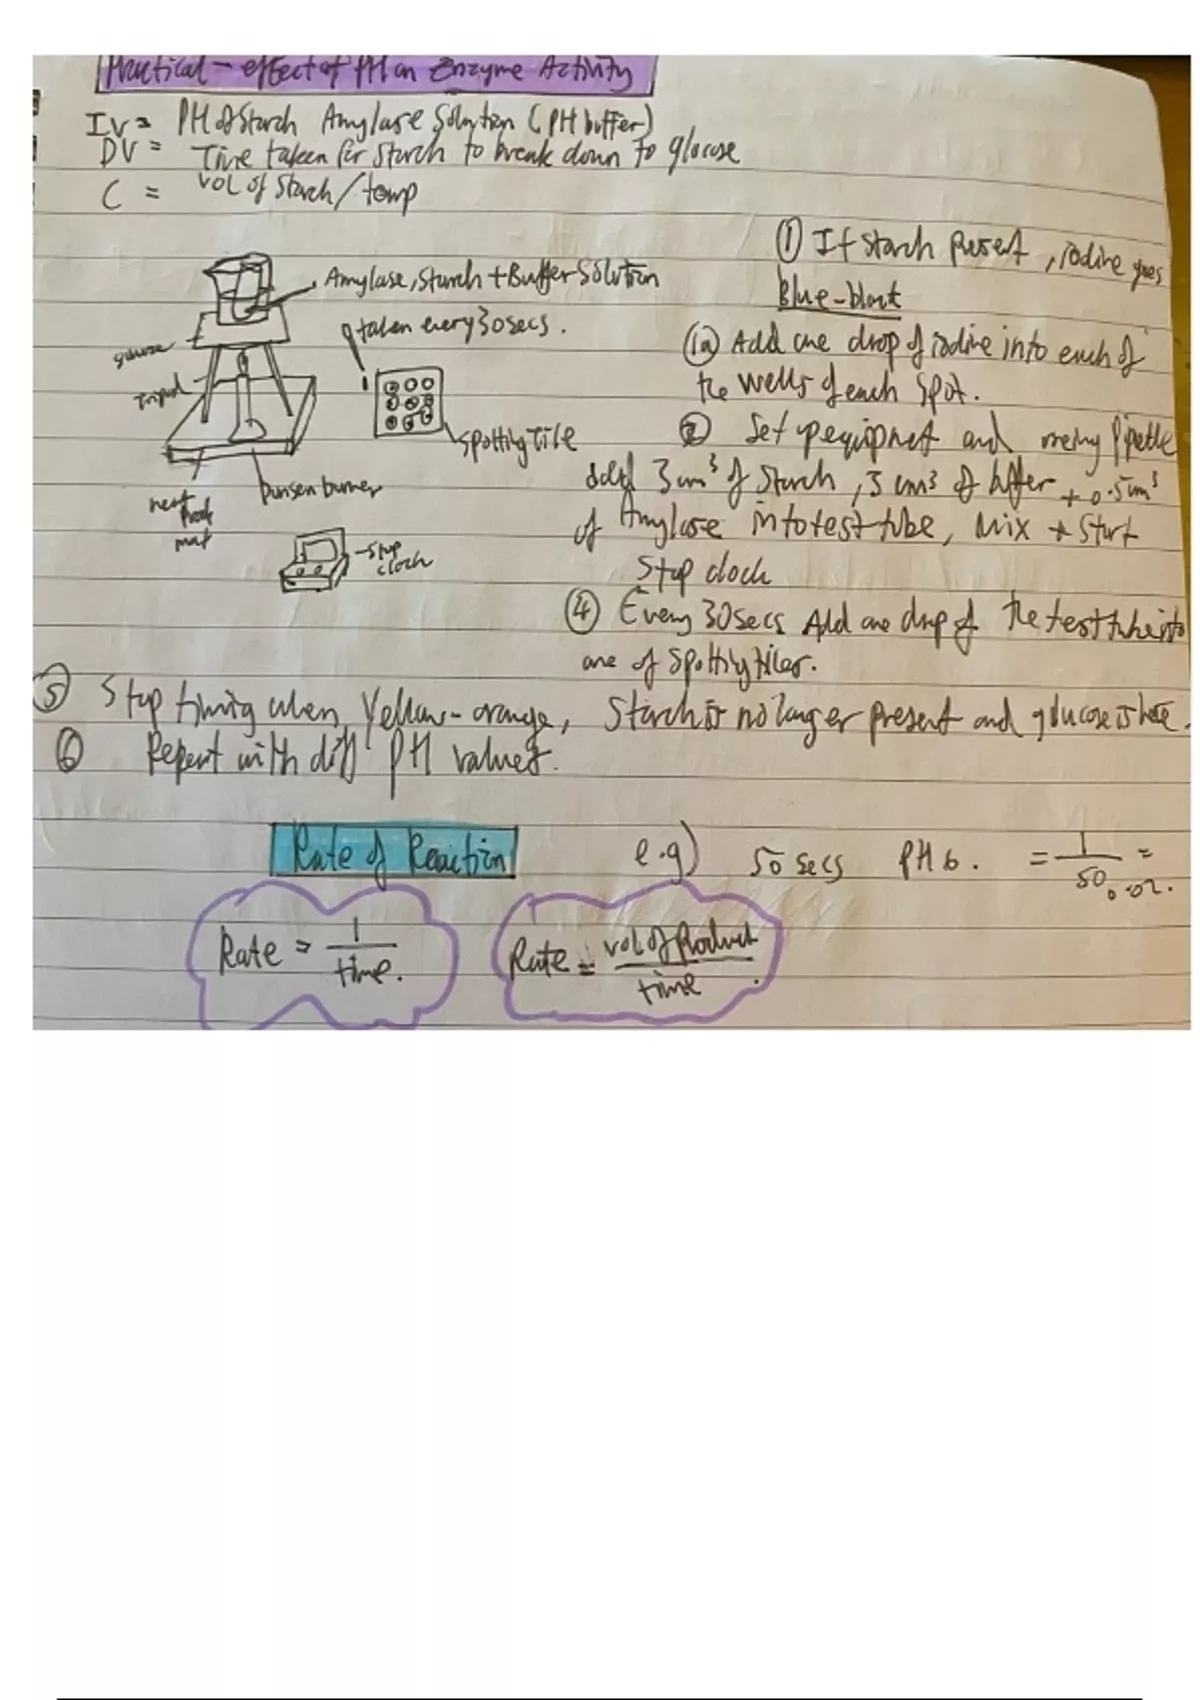 Practical - effect of PH on Enzyme Activity
IV = PH of Starch Amylase Solution (PH buffer)
DV = Time taken for Starch to break down to glucose
C = vol of Starch / temp
Amylase, Starch + Buffer Solution
taken every 30 secs.
gauze
Tripod
Spotting Tile
heat
proof
mat
bunsen burner
- stop
clock
① If Starch Present, iodine goes
Blue-black
(1a) Add one drop of iodine into each of
the wells of each Spot.
② Set up equipment and using Pipette
add 3 cm³ of Starch, 3 cm³ of buffer + 0.5 cm³
of Amylase into test tube, Mix + Start
Stop clock
④ Every 30 secs Add one drop of the test tube into
one of Spotting tiles.
⑤ Stop timing when Yellow-orange, Starch is no longer present and glucose is here.
⑥ Repeat with diff PH values.
Rate of Reaction
e.g) 50 secs PH 6. = 1/50 = 0.02.
Rate = 1/time.
Rate = vol of Product/time.